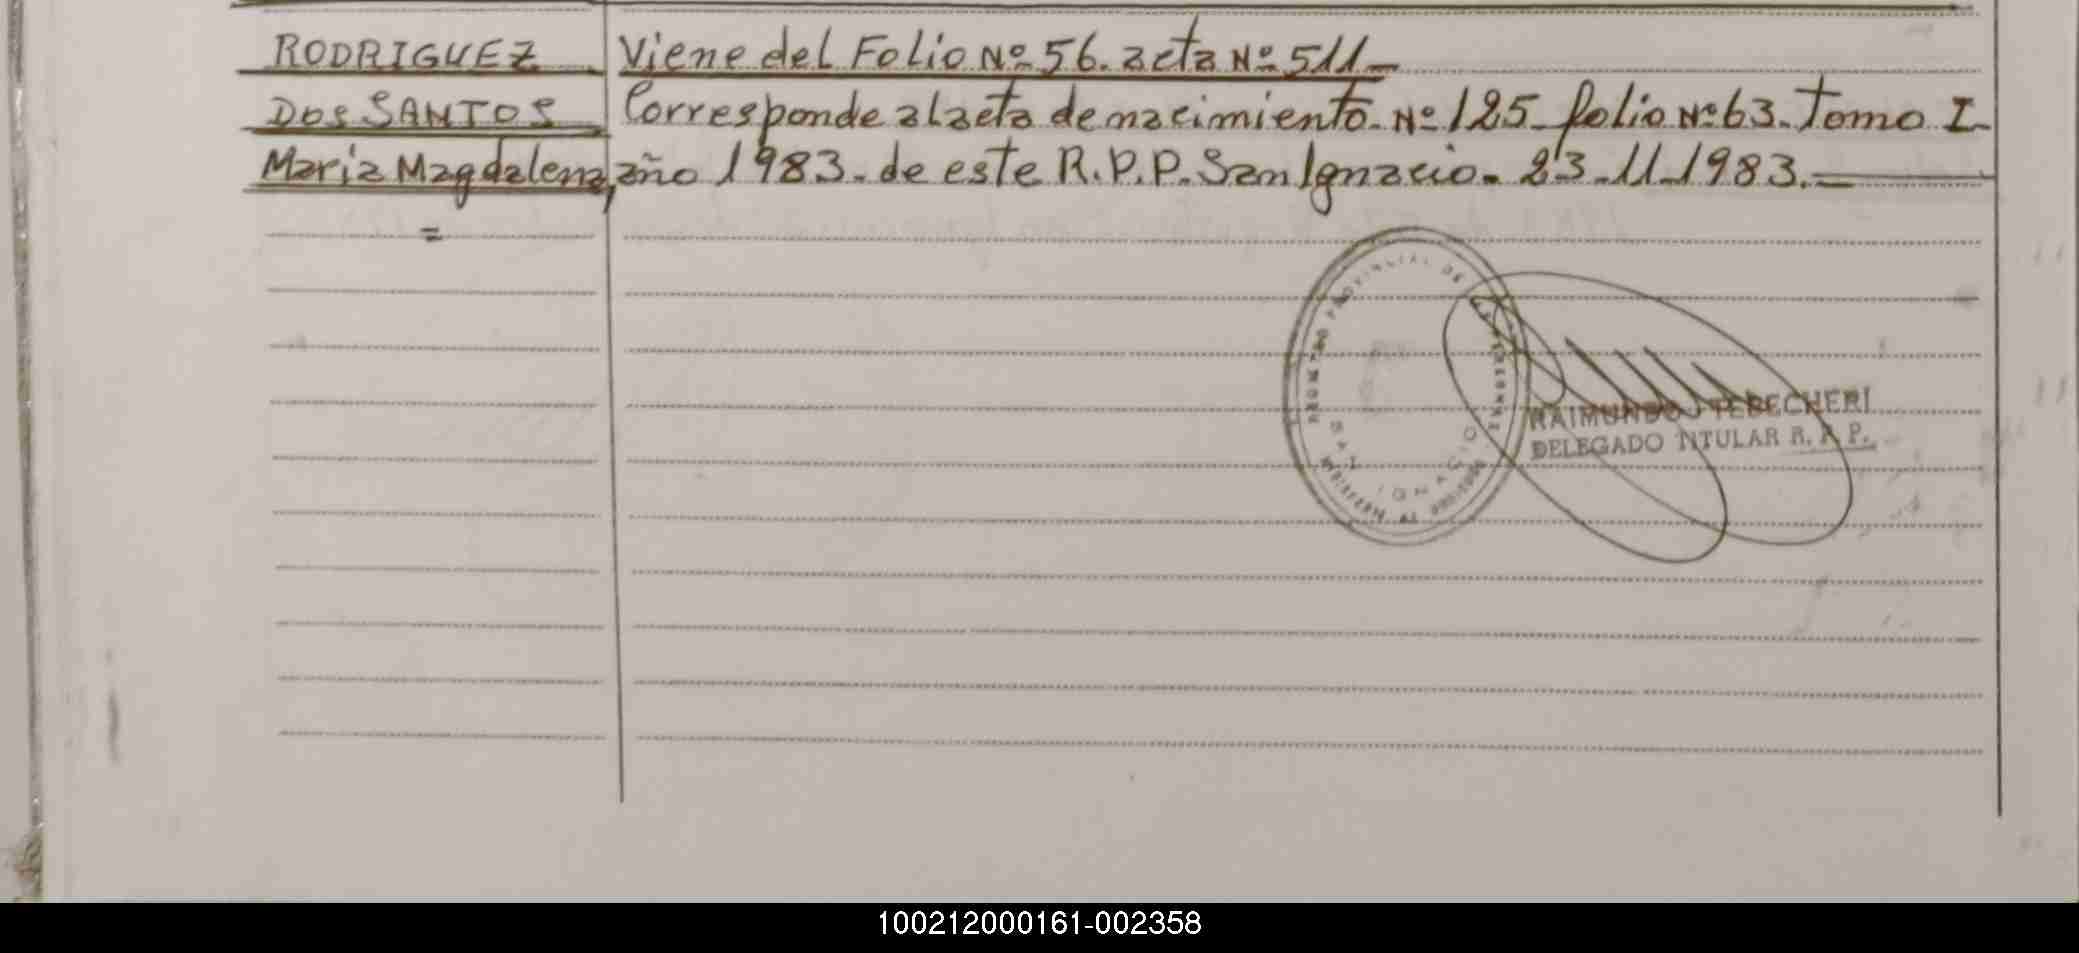 RODRIGUEZ Viene del Folio Nº 56. acta Nº 511-
DOS SANTOS Corresponde al acta de nacimiento. Nº 125- folio Nº 63. Tomo I-
Maria Magdalena, año 1983. de este R.P.P. San Ignacio. 23-11-1983.-
=
PROVINCIAL DE
SAN IGNACIO
RAIMUNDO J TEBECHERI
DELEGADO TITULAR R. P. P.
100212000161-002358